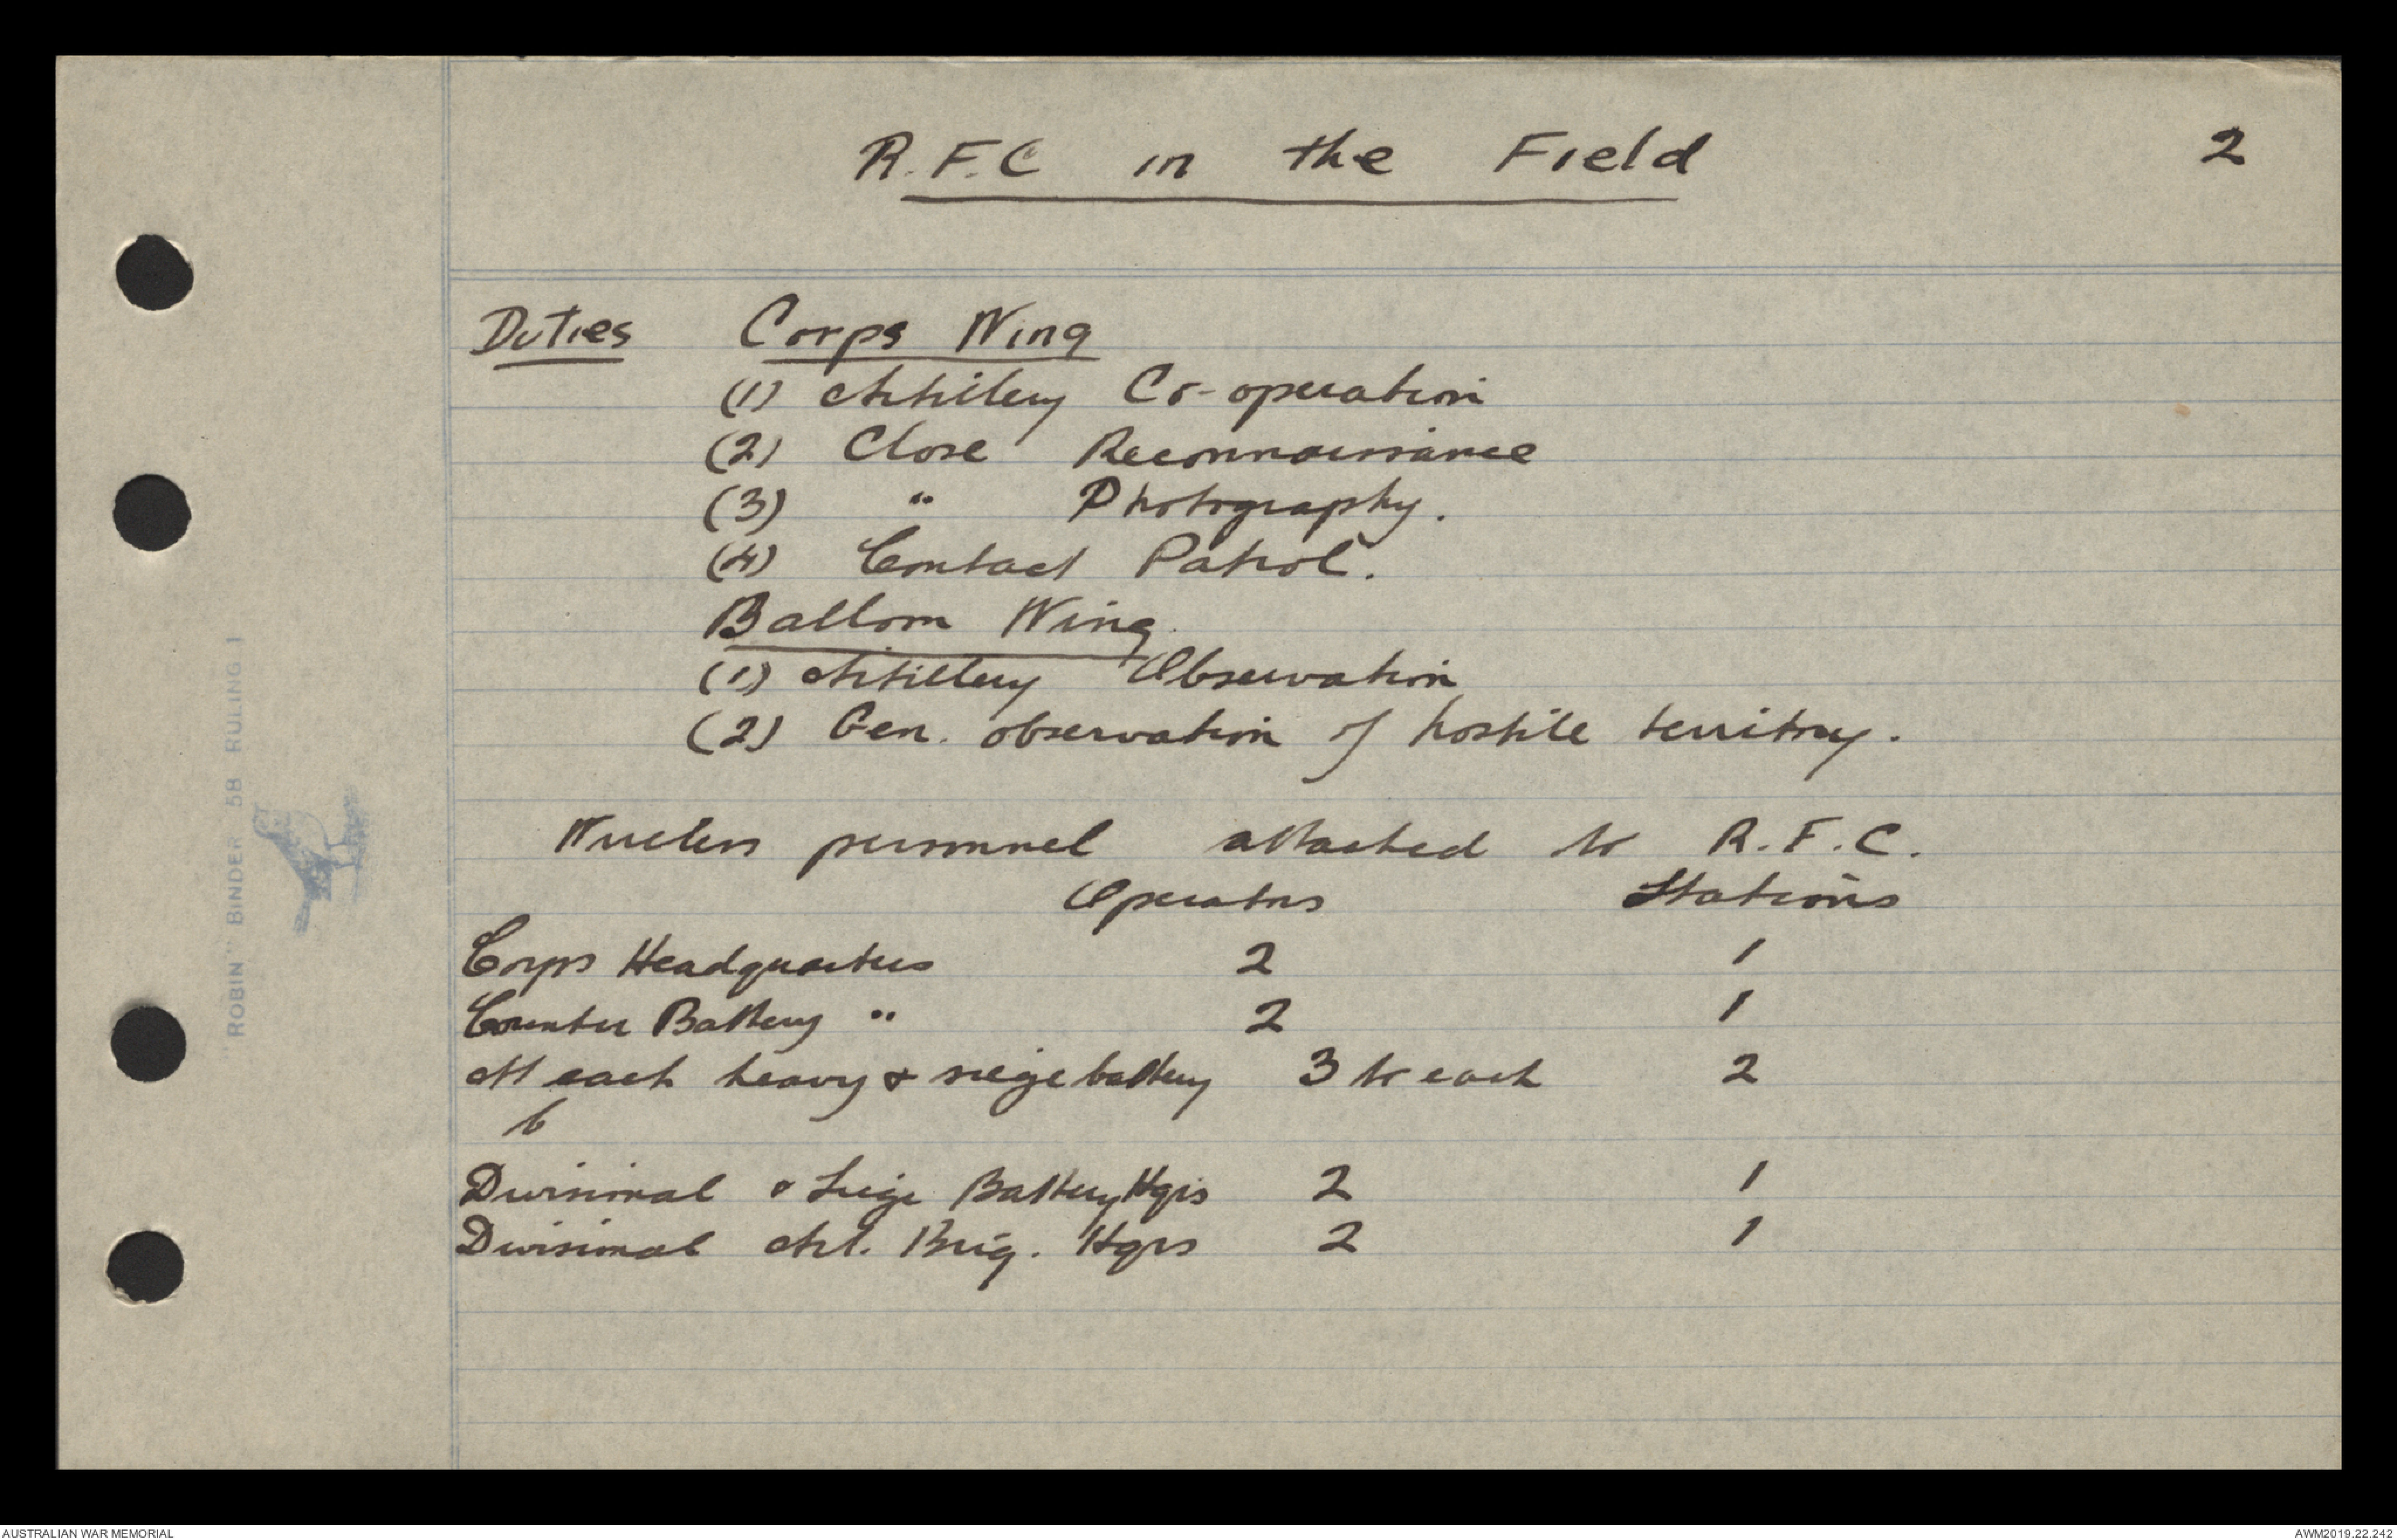 R.F.C in the Field
2
Duties Corps Wing
(1) Artillery Co-operation
(2) Close Reconnaissance
(3) " Photography.
(4) Contact Patrol.
Balloon Wing.
(1) Artillery Observation
(2) Gen. observation of hostile territory.
Wireless personnel attached to R.F.C.
Operators Stations
Corps Headquarters 2 1
Counter Battery " 2 1
At each heavy & siege battery 3 to each 2
6
Divisional & Siege Battery Hqrs 2 1
Divisional Art. Brig. Hqrs 2 1
"ROBIN" BINDER 5B RULING 1
AUSTRALIAN WAR MEMORIAL
AWM2019.22.242